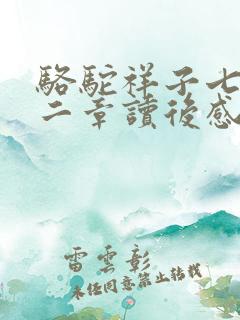 駱駝祥子七
二章讀後感
雷雲彰
未经同意禁止转载